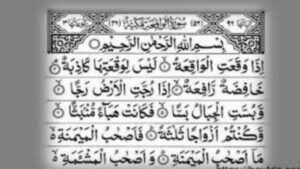 سُوْرَةُ الْوَاقِعَةِ مَكِّيَّةٌ
بِسْمِ اللّٰهِ الرَّحْمٰنِ الرَّحِيْمِ
اِذَا وَقَعَتِ الْوَاقِعَةُ ۝ لَيْسَ لِوَقْعَتِهَا كَاذِبَةٌ ۝
خَافِضَةٌ رَّافِعَةٌ ۝ اِذَا رُجَّتِ الْاَرْضُ رَجًّا ۝
وَّبُسَّتِ الْجِبَالُ بَسًّا ۝ فَكَانَتْ هَبَآءً مُّنْۢبَثًّا ۝
وَّكُنْتُمْ اَزْوَاجًا ثَلٰثَةً ۝ فَاَصْحٰبُ الْمَيْمَنَةِ
مَاۤ اَصْحٰبُ الْمَيْمَنَةِ ۝ وَاَصْحٰبُ الْمَشْـَٔمَةِ